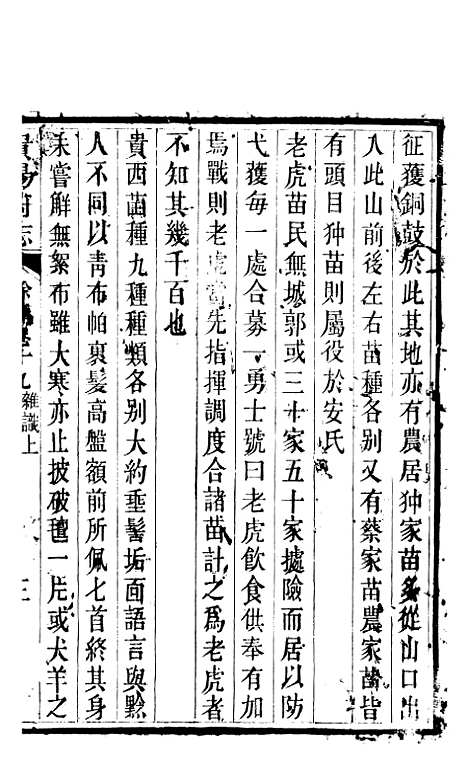 征獲銅鼓於此其地亦有農居狆家苗多從山口出
入此山前後左右苗種各別又有蔡家苗農家苗皆
有頭目狆苗則屬役於安氏
老虎苗民無城郭或三十家五十家據險而居以防
弋獲每一處合募一勇士號曰老虎飲食供奉有加
焉戰則老虎當先指揮調度合諸苗計之為老虎者
不知其幾千百也
貴西苗種九種種類各别大約垂髻垢面語言與黔
人不同以青布帕裹髮高盤額前所佩匕首終其身
未嘗解無絮布雖大寒亦止披破氊一片或犬羊之
貴陽府志
餘編卷十九雜識上
三